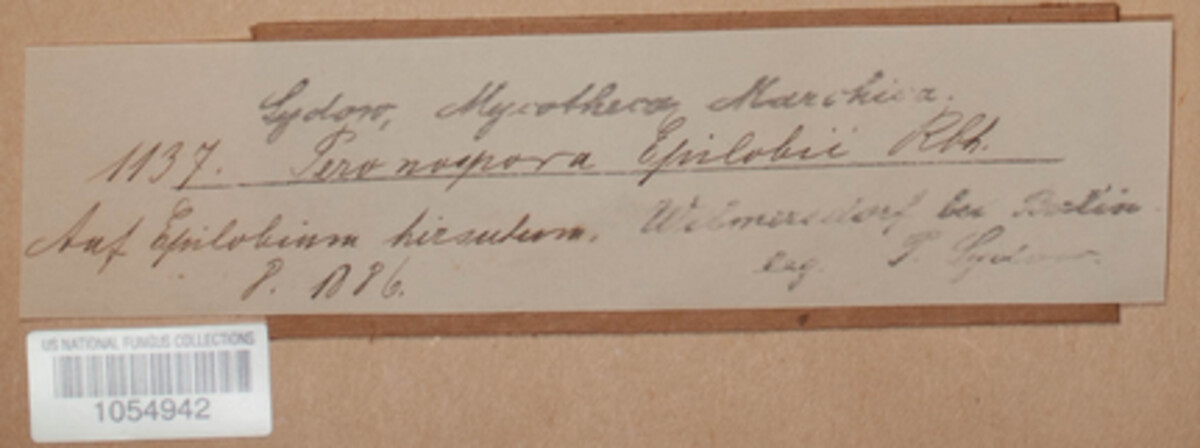 Sydow, Mycotheca Marchica.
1137. Peronospora Epilobii Rbh.
Auf Epilobium hirsutum. Wilmersdorf bei Berlin
8. 1886. leg. P. Sydow.
US NATIONAL FUNGUS COLLECTIONS
1054942